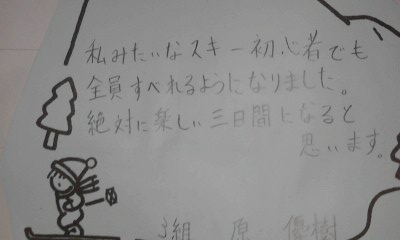 私みたいなスキー初心者でも
全員すべれるようになりました。
絶対に楽しい三日間になると
思います。
組 原 優樹